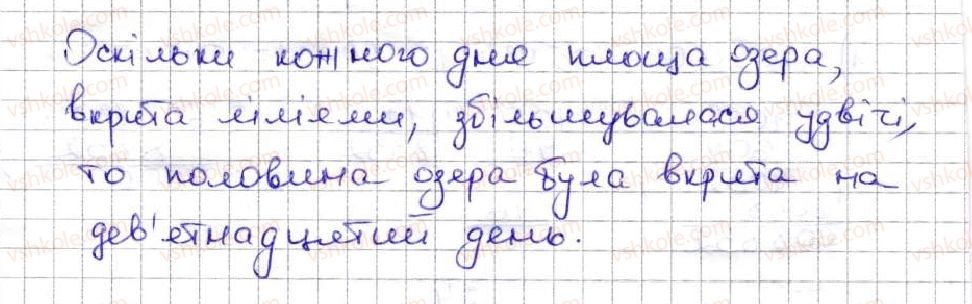 Оскільки кожного дня площа озера,
вкрита ліліями, збільшувалася удвічі,
то половина озера була вкрита на
дев'ятнадцятий день.